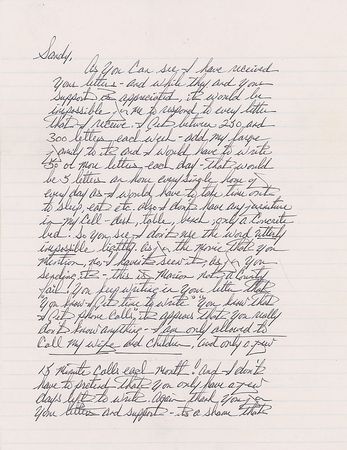 Sandy,
As you can see, I have received
your letters - and while they and your
support is appreciated, it would be
impossible for me to respond to every letter
that I receive. I get between 250 and
300 letters each week - add my large
family to it, and I would have to write
or more letters each day - that would
be 3 letters an hour every single hour of
every day as I would have to take time out
to sleep, eat etc. also I don't have any furniture
in my cell - desk, table, bench, only a concrete
bed. So you see, I don't use the word utterly
impossible lightly, as in the movie that you
mention, no I haven't seen it, as in you
sending it - this is Marion not a County
Jail. You keep writing in your letter that
"you know I get time to write" "you know that
I get phone calls", it appears that you really
don't know anything - I am only allowed to
call my wife and children, and only a few
15 minute calls each month! And I don't
have to pretend that you only have a few
days left to write. Again thank you for
your letters and support - its a shame that